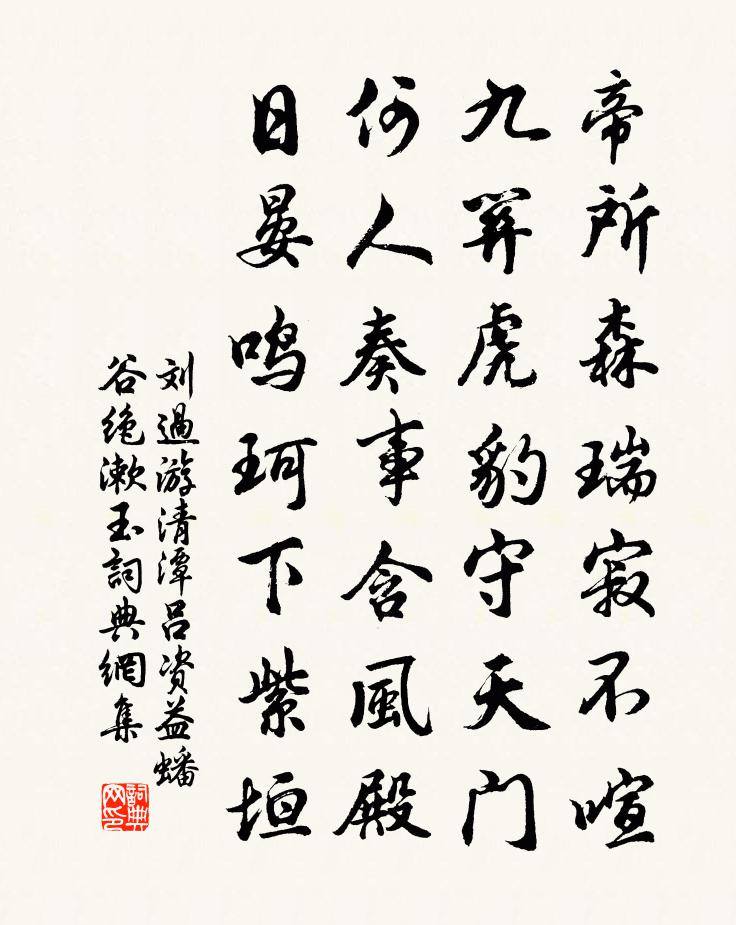 帝所森瑞寂不喧
九关虎豹守天门
何人奏事含風殿
日晏鸣珂下紫垣
刘過游清潭吕资益蟠
谷绝漱玉詞典網集
詞典
网印